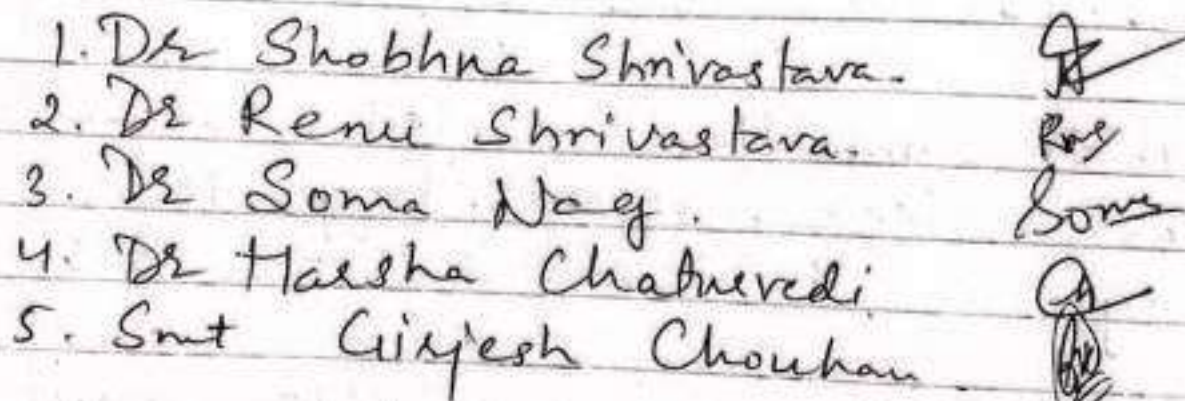 1. Dr Shobhna Shrivastava.
2. Dr Renu Shrivastava.
3. Dr Soma Nag. Soma
4. Dr Harsha Chaturvedi
5. Smt Girjesh Chouhan